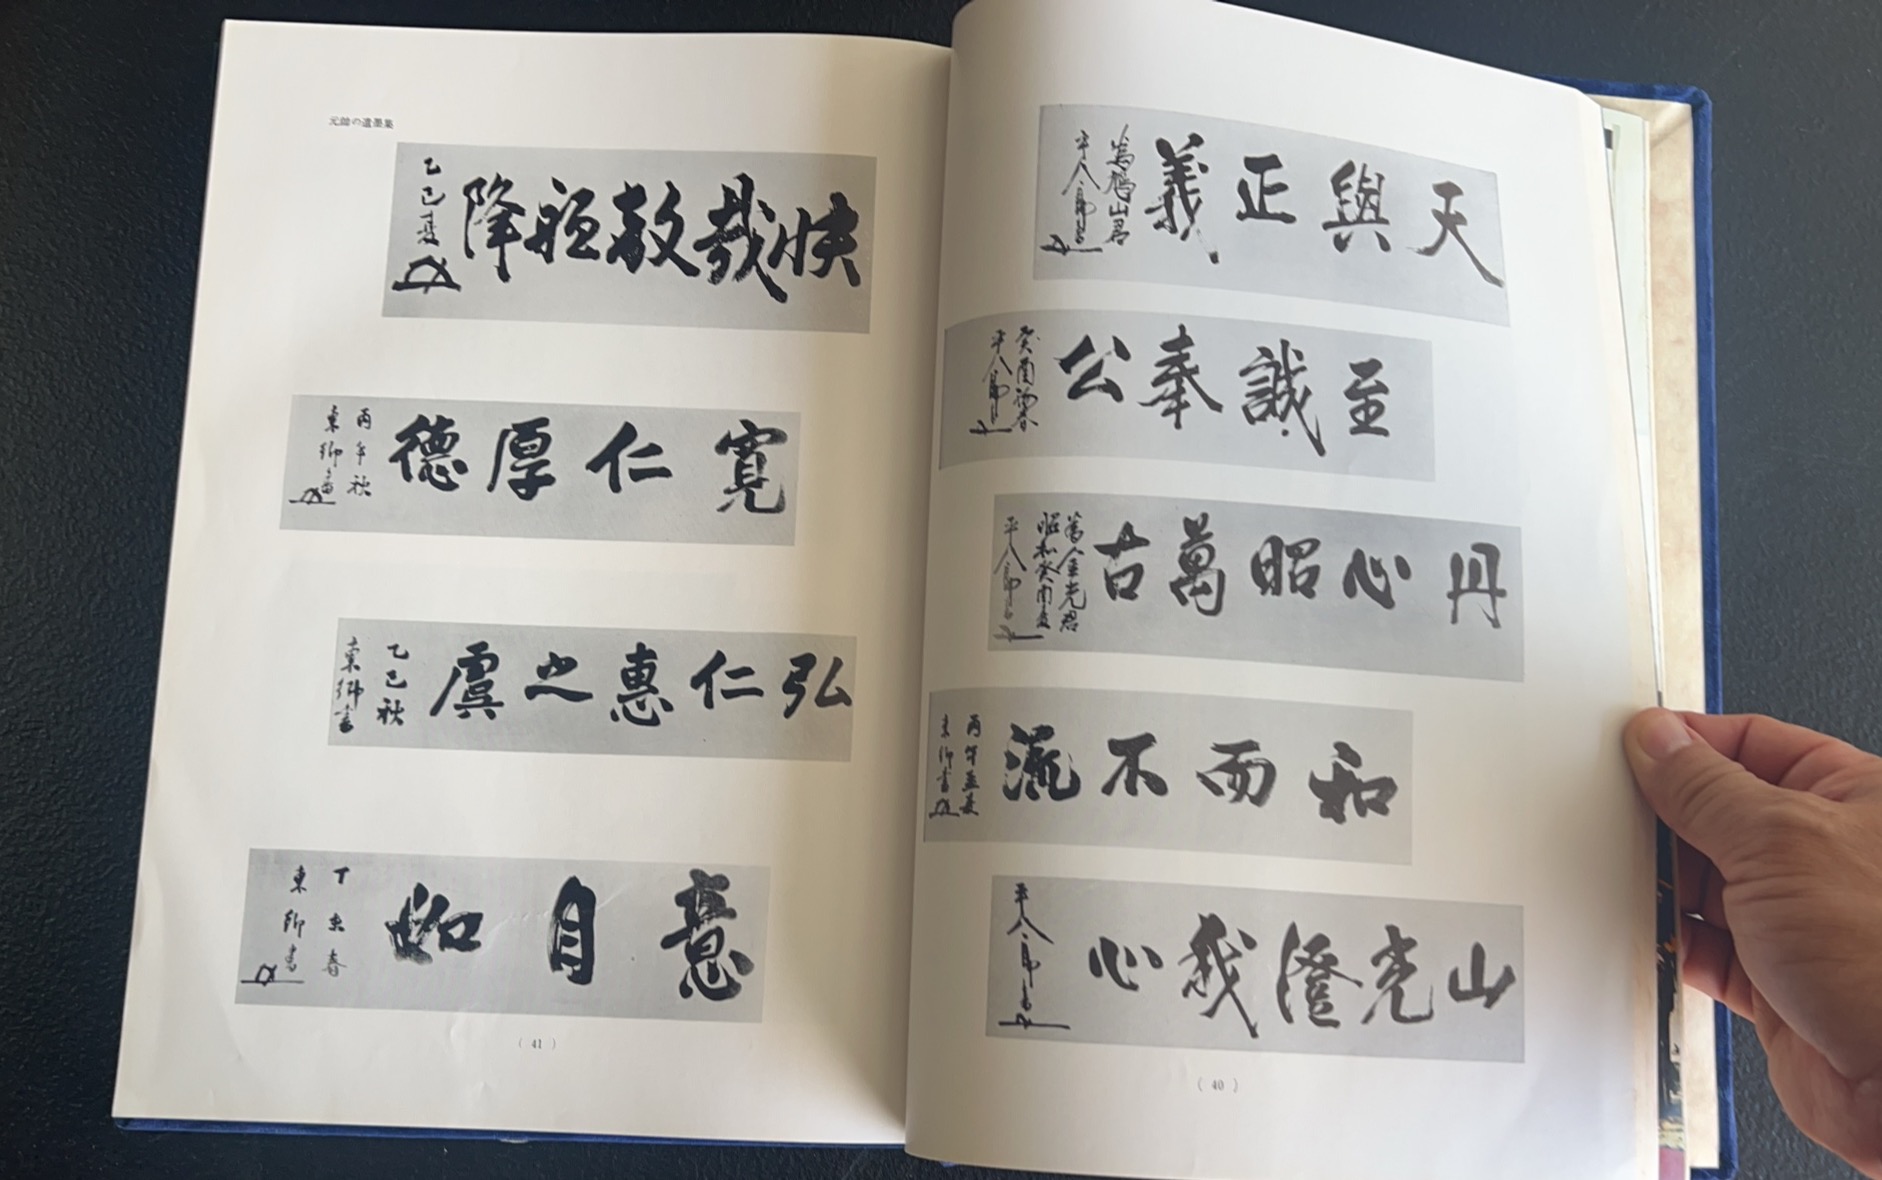 天與正義
平八郎書
至誠奉公
癸酉初春
平八郎書
丹心昭萬古
為金光君
昭和癸酉夏
平八郎書
和而不流
丙午孟夏
東郷書
山光澄我心
平八郎書
( 40 )
元帥の遺墨集
乙巳夏
寛仁厚德
丙午秋
東郷書
弘仁惠之虞
乙巳秋
東郷書
意自如
丁未春
東郷書
( 41 )